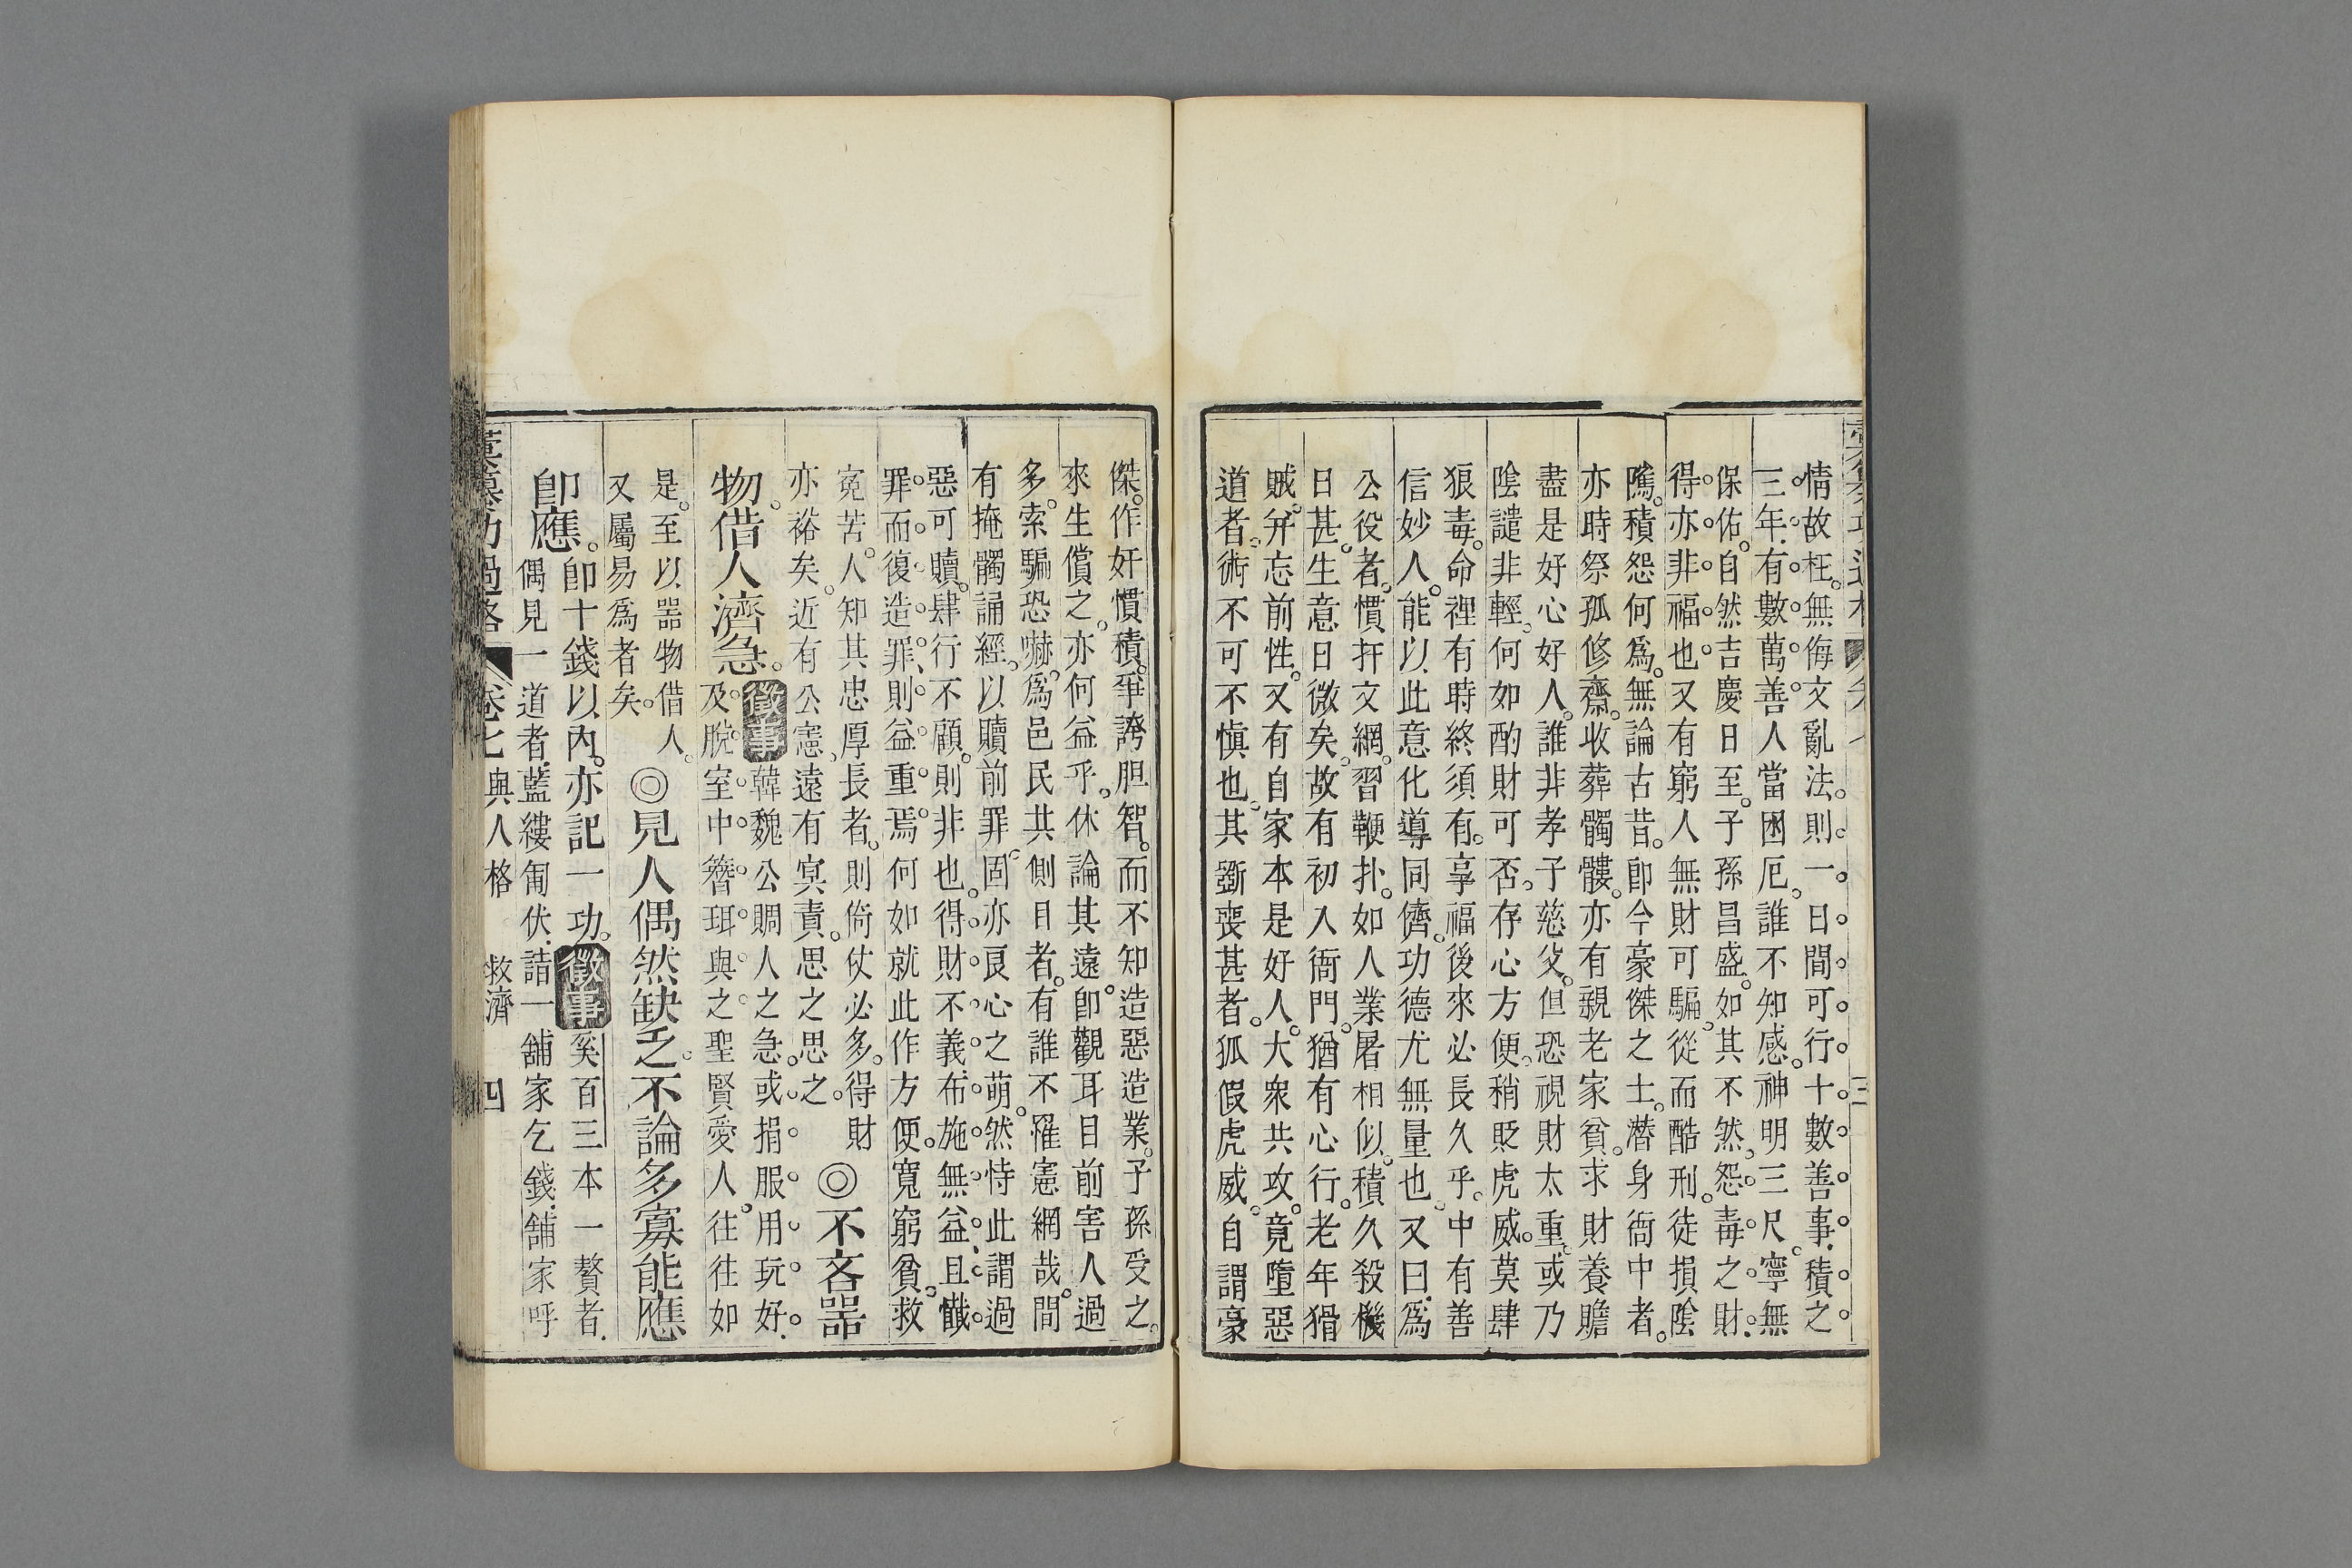 情故枉。無侮文亂法。則一日間可行十數善事。積之
三年。有數萬善。人當困厄。誰不知感。神明三尺。寧無
保佑。自然吉慶日至。子孫昌盛。如其不然。怨毒之財。
得亦非福也。又有窮人無財可騙。從而酷刑。徒損陰
隲。積怨何爲。無論古昔。卽今豪傑之士。潛身衙中者。
亦時祭孤修齋。收葬髑髏。亦有親老家貧。求財養贍
盡是好心好人。誰非孝子慈父。但恐視財太重。或乃
陰譴非輕。何如酌財可否。存心方便。稍貶虎威。莫肆
狼毒。命裡有時終須有。享福後來必長久乎。中有善
信妙人。能以此意化導同儕。功德尤無量也。又曰。爲
公役者。慣扞文網。習鞭扑。如人業屠相似。積久殺機
日甚。生意日微矣。故有初入衙門。猶有心行。老年猾
賊。弁忘前性。又有自家本是好人。大衆共攻。竟墮惡
道者。術不可不愼也。其斵喪甚者。狐假虎威。自謂豪
傑。作奸慣積。爭誇胆智。而不知造惡造業。子孫受之。
來生償之。亦何益乎。休論其遠。卽觀耳目前害人過
多。索騙恐嚇。爲邑民共側目者。有誰不罹憲網哉。間
有掩髑誦經。以贖前罪。固亦良心之萌。然恃此謂過
惡可贖。肆行不顧。則非也。得財不義。布施無益。且懺
罪而復造罪。則益重焉。何如就此作方便。寬窮貧。救
寃苦。人知其忠厚長者。則倚仗必多。得財
亦裕矣。近有公憲。遠有冥責。思之思之。
◎不吝器
物借人濟急。
徵事
韓魏公賙人之急。或捐服用玩好。
及脫室中簪珥與之。聖賢愛人。往往如
是。至以器物借人。
又屬易爲者矣。
◎見人偶然缺乏。不論多寡能應
卽應。卽十錢以內。亦記一功。
徵事
奚百三本一贅者。
偶見一道者。藍縷匍伏。詣一舖家乞錢。舖家呼
卷七 與人格 救濟 四